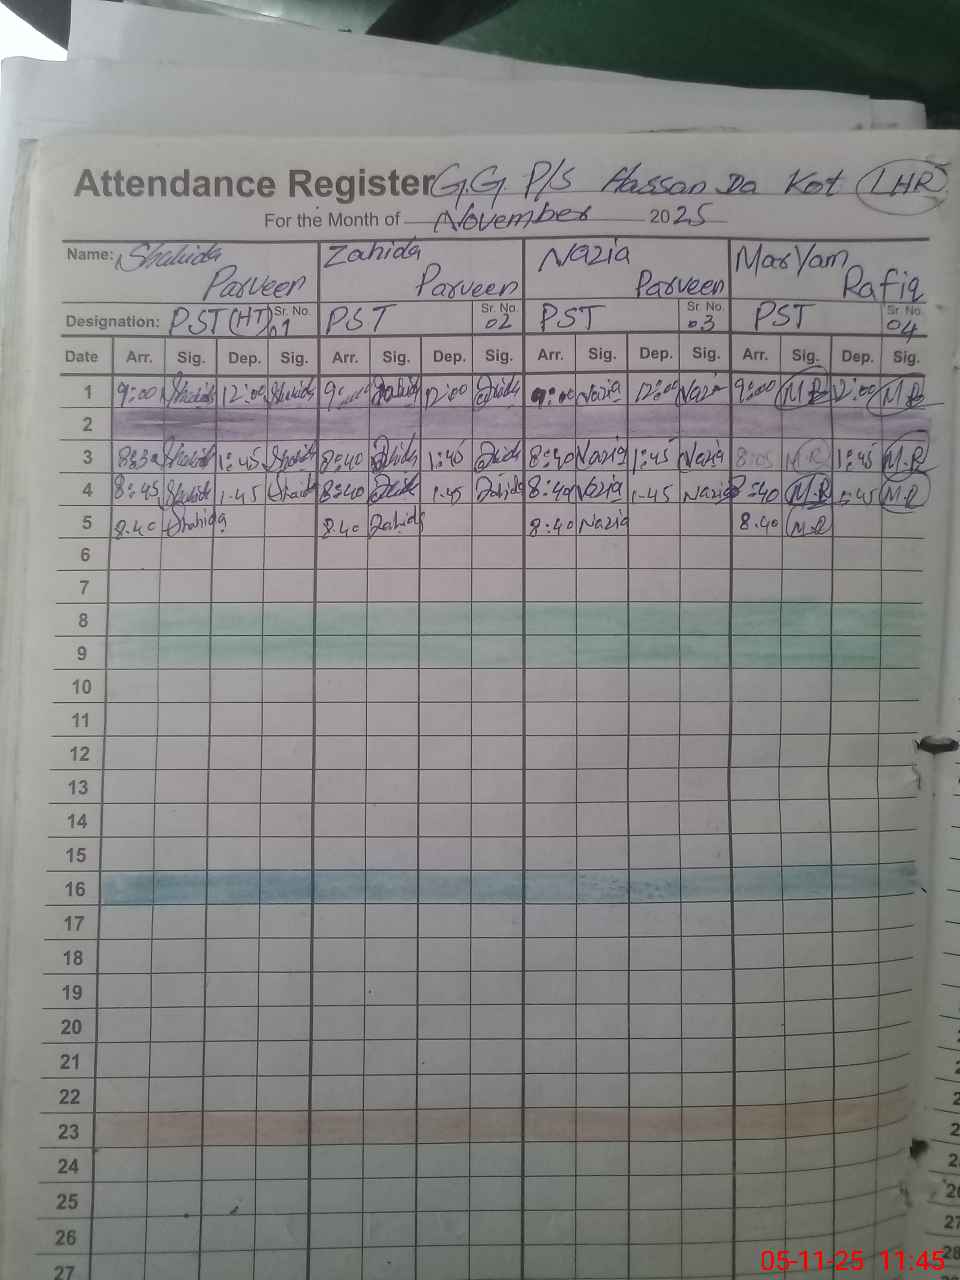 Attendance Register G.G. P/S Hassan Da Kot (LHR)
For the Month of November 2025
Name: Shahida Parveen Zahida Parveen Nazia Parveen Maryam Rafiq
Designation: PST (HT) Sr. No. 01 PST Sr. No. 02 PST Sr. No. 03 PST Sr. No. 04
Date Arr. Sig. Dep. Sig. Arr. Sig. Dep. Sig. Arr. Sig. Dep. Sig. Arr. Sig. Dep. Sig.
1 9:00 Shahida 12:00 Shahida 9:00 Zahida 12:00 Zahida 9:00 Nazia 12:00 Nazia 9:00 M.R 12:00 M.R
2
3 8:30 Shahida 1:45 Shahida 8:40 Zahida 1:45 Zahida 8:40 Nazia 1:45 Nazia 8:05 M.R 1:45 M.R
4 8:45 Shahida 1.45 Shahida 8:40 Zahida 1.45 Zahida 8:40 Nazia 1.45 Nazia 8:40 M.R 1:45 M.R
5 8.40 Shahida 8.40 Zahida 8:40 Nazia 8.40 M.R
6
7
8
9
10
11
12
13
14
15
16
17
18
19
20
21
22
23
24
25
26
27
05-11-25 11:45